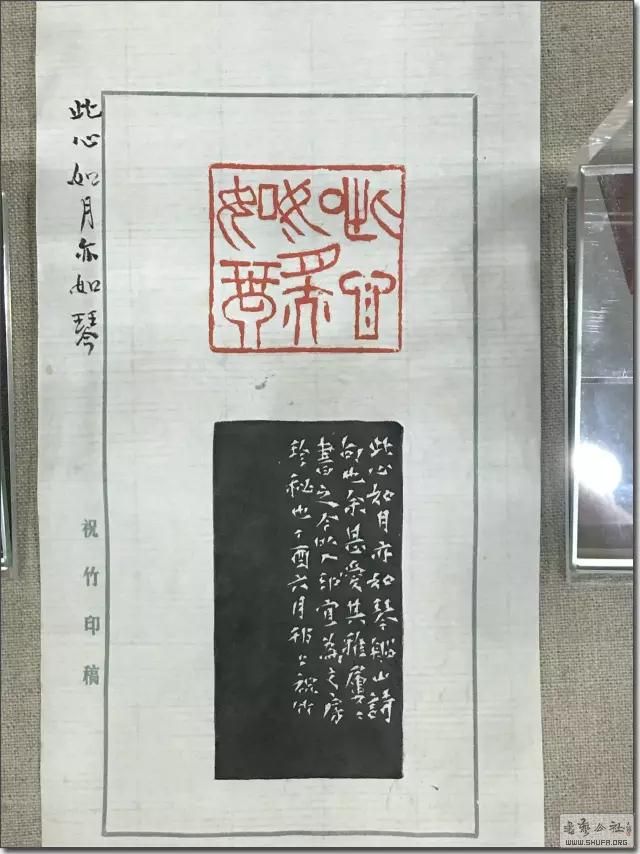 此心如月亦如琴
此心如月亦如琴船山詩
句也余甚愛其雅屢〻
書之今以入印宜為之家
珍秘也丁酉六月祝竹
祝竹印稿
書藝公社
WWW.SHUFA.ORG